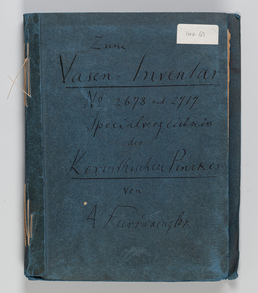 Inv. 61
Zum
Vasen-Inventar
No 2678 und 2719
Specialverzeichnis
der
Korinthischen Pinakes
von
A Furtwaengler